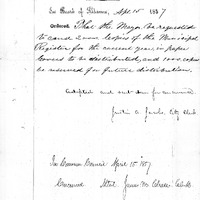 In Board of Aldermen, Apl. 15 1857
Ordered, That the Mayor be requested
to send 2000 copies of the Municipal
Register for the current year in paper
covers to be distributed, and 1000 copies
be reserved for future distribution.
Adopted and sent down for concurrence
City Clerk
In Common Council April 15 1857
Concurred Attest James M. Clerk